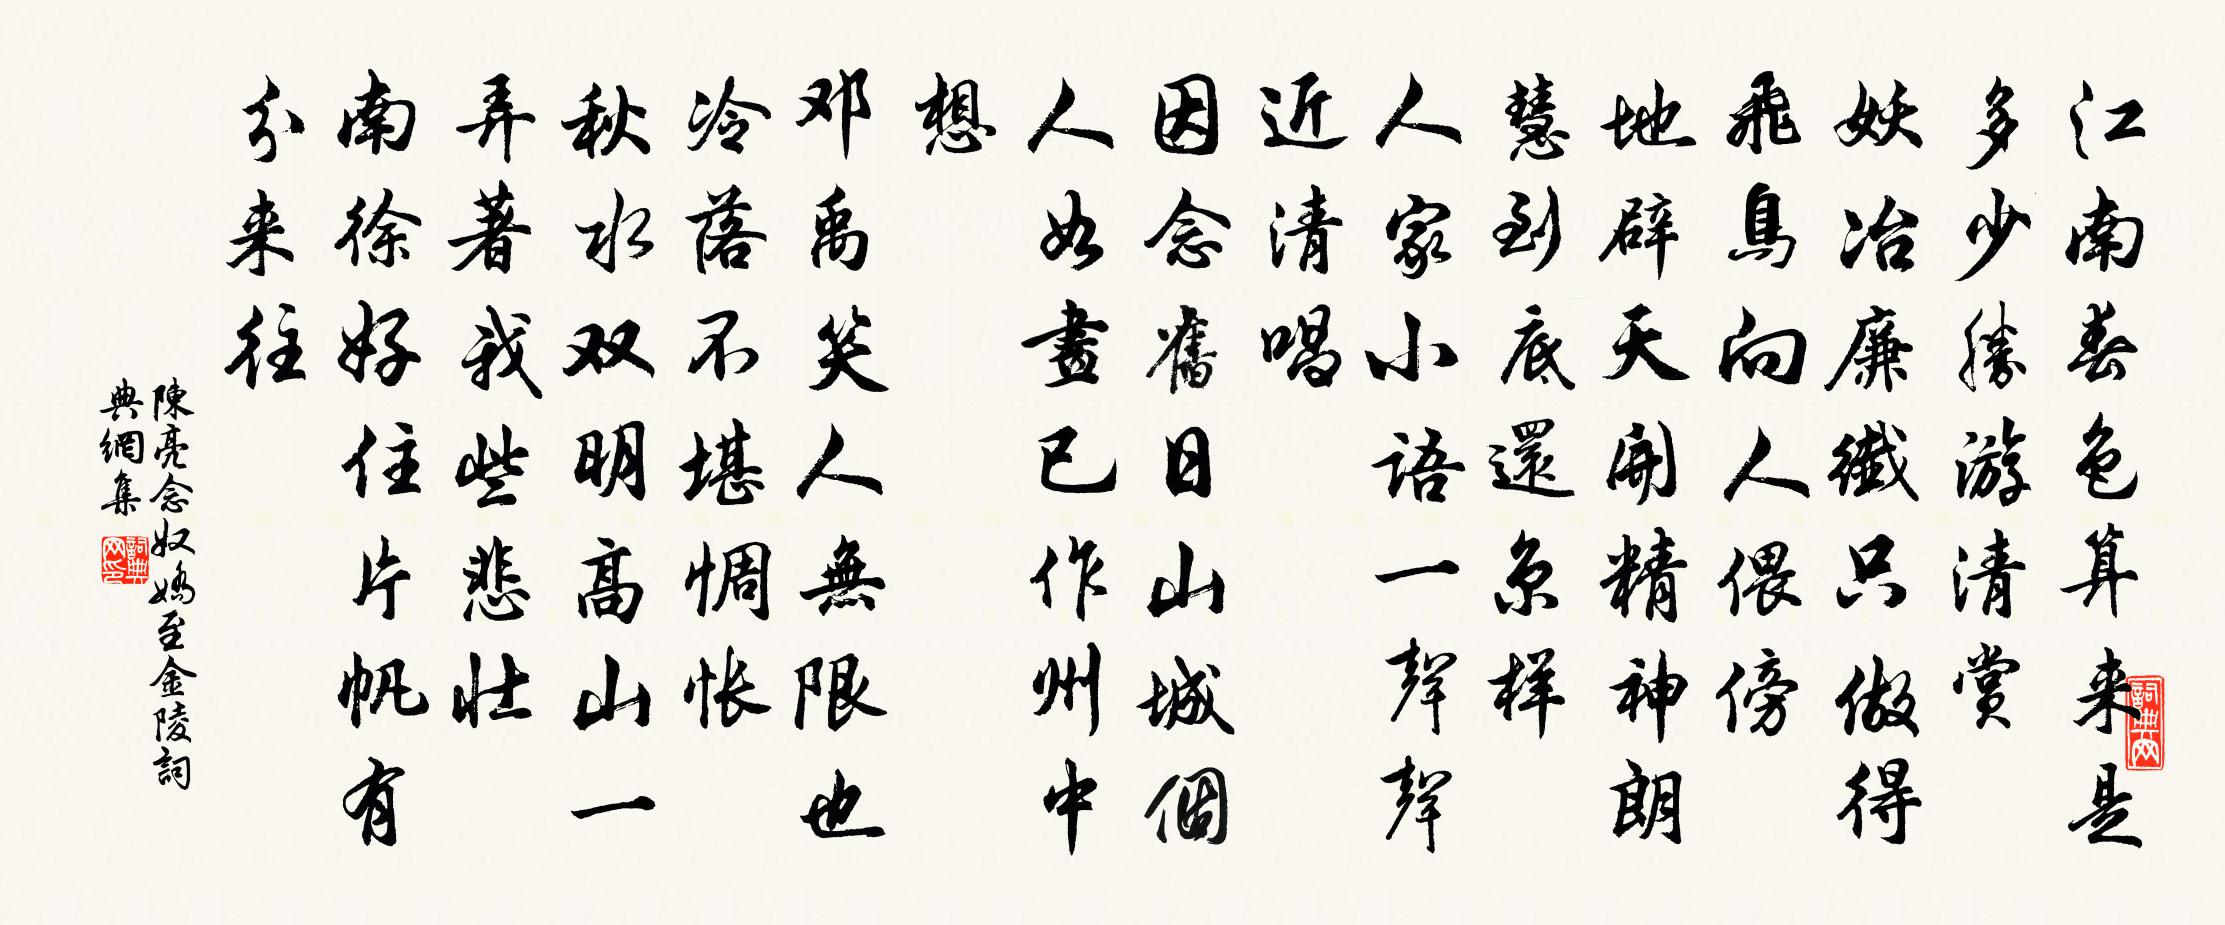 江南春色算来是
多少勝游清赏
妖冶廉纖只做得
飛鳥向人偎傍
地辟天開精神朗
慧到底還京样
人家小語一聲聲
近清唱
因念舊日山城個
人如畫已作州中
想
邓禹笑人無限也
冷落不堪惆怅
秋水双明高山一
弄著我些悲壮
南徐好住片帆有
分来往
陳亮念奴嬌至金陵詞
典網集
詞典网
詞典
网印